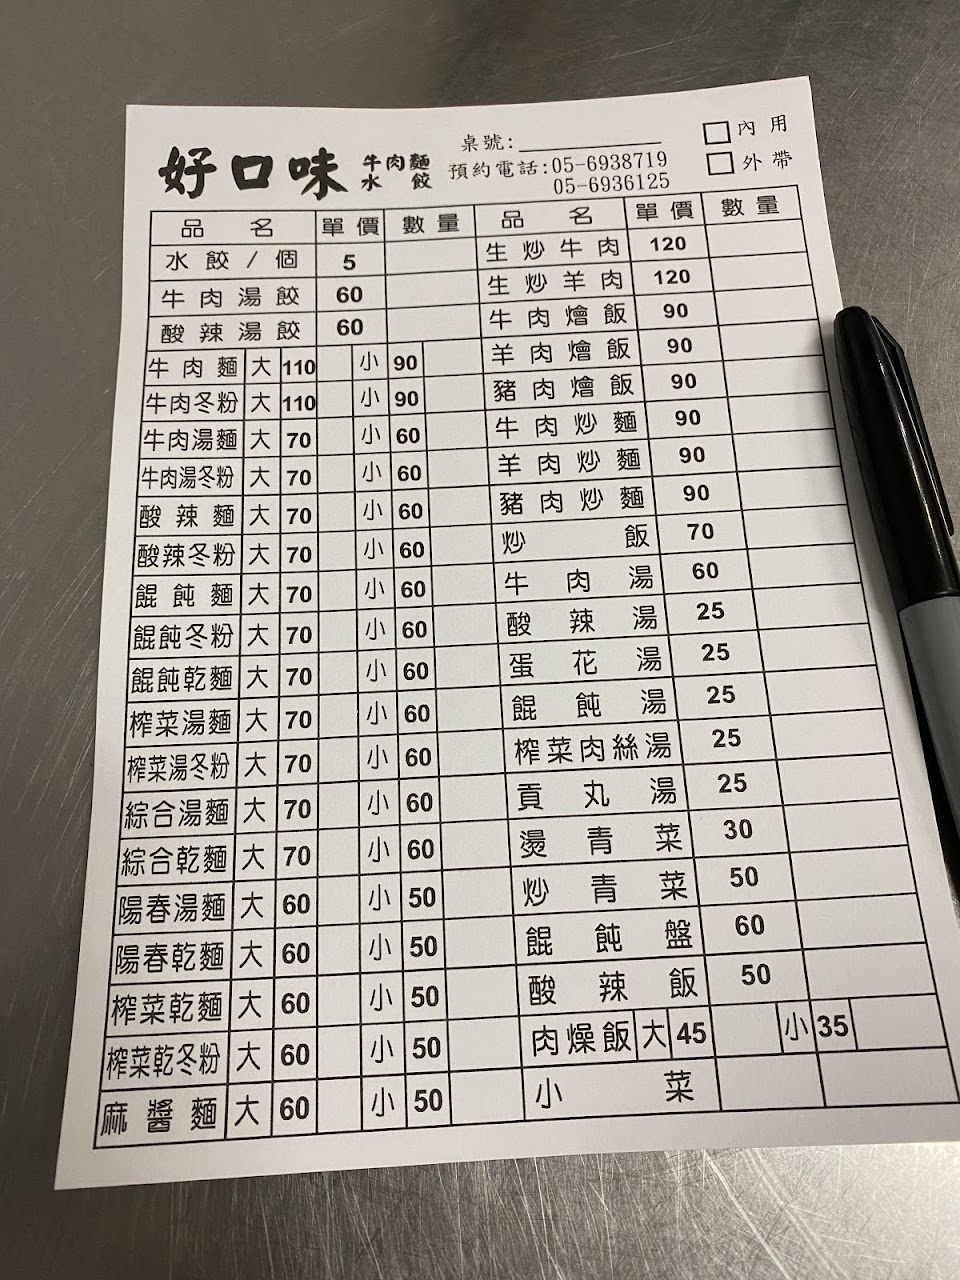 好口味 牛肉麵 水餃
桌號:
預約電話:05-6938719
05-6936125
內用
外帶
品名 單價 數量 品名 單價 數量
水餃/個 5
牛肉湯餃 60
酸辣湯餃 60
牛肉麵 大 110 小 90
牛肉冬粉 大 110 小 90
牛肉湯麵 大 70 小 60
牛肉湯冬粉 大 70 小 60
酸辣麵 大 70 小 60
酸辣冬粉 大 70 小 60
餛飩麵 大 70 小 60
餛飩冬粉 大 70 小 60
餛飩乾麵 大 70 小 60
榨菜湯麵 大 70 小 60
榨菜湯冬粉 大 70 小 60
綜合湯麵 大 70 小 60
綜合乾麵 大 70 小 60
陽春湯麵 大 60 小 50
陽春乾麵 大 60 小 50
榨菜乾麵 大 60 小 50
榨菜乾冬粉 大 60 小 50
麻醬麵 大 60 小 50
生炒牛肉 120
生炒羊肉 120
牛肉燴飯 90
羊肉燴飯 90
豬肉燴飯 90
牛肉炒麵 90
羊肉炒麵 90
豬肉炒麵 90
炒飯 70
牛肉湯 60
酸辣湯 25
蛋花湯 25
餛飩湯 25
榨菜肉絲湯 25
貢丸湯 25
燙青菜 30
炒青菜 50
餛飩盤 60
酸辣飯 50
肉燥飯 大 45 小 35
小菜